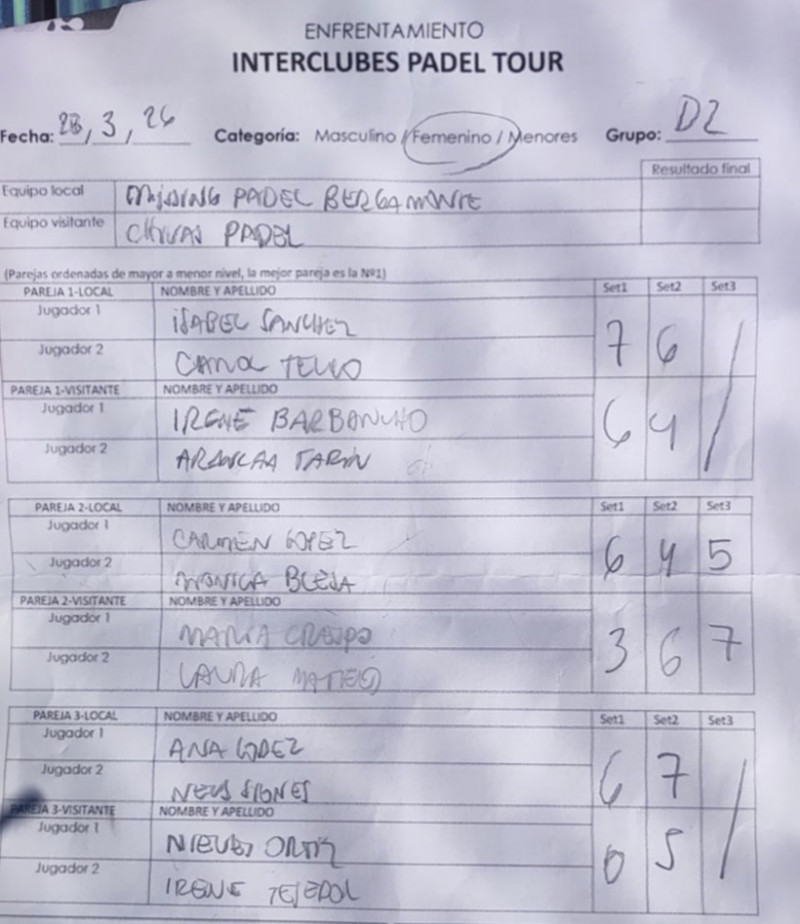 ENFRENTAMIENTO
INTERCLUBES PADEL TOUR
Fecha: 28, 3, 26 Categoría: Masculino / Femenino / Menores Grupo: D2
Resultado final
Equipo local MiSSING PADEL BERGAMONTE
Equipo visitante CHIVAS PADEL
(Parejas ordenadas de mayor a menor nivel, la mejor pareja es la Nº1)
PAREJA 1-LOCAL NOMBRE Y APELLIDO Set1 Set2 Set3
Jugador 1 iSABEL SANCHEZ
7 6 /
Jugador 2 CAROL TELLO
PAREJA 1-VISITANTE NOMBRE Y APELLIDO
Jugador 1 IRENE BARBANCHO
6 4
Jugador 2 TARIN
PAREJA 2-LOCAL NOMBRE Y APELLIDO Set1 Set2 Set3
Jugador 1 CARMEN LOPEZ
6 4 5
Jugador 2 MONICA BLEJA
PAREJA 2-VISITANTE NOMBRE Y APELLIDO
Jugador 1 MARIA CRESPO
3 6 7
Jugador 2 LAURA MATEO
PAREJA 3-LOCAL NOMBRE Y APELLIDO Set1 Set2 Set3
Jugador 1 ANA LOPEZ
6 7 /
Jugador 2 NEUS SIGNES
PAREJA 3-VISITANTE NOMBRE Y APELLIDO
Jugador 1 NIEVES ORTIZ
0 5
Jugador 2 IRENE TEJEDOR